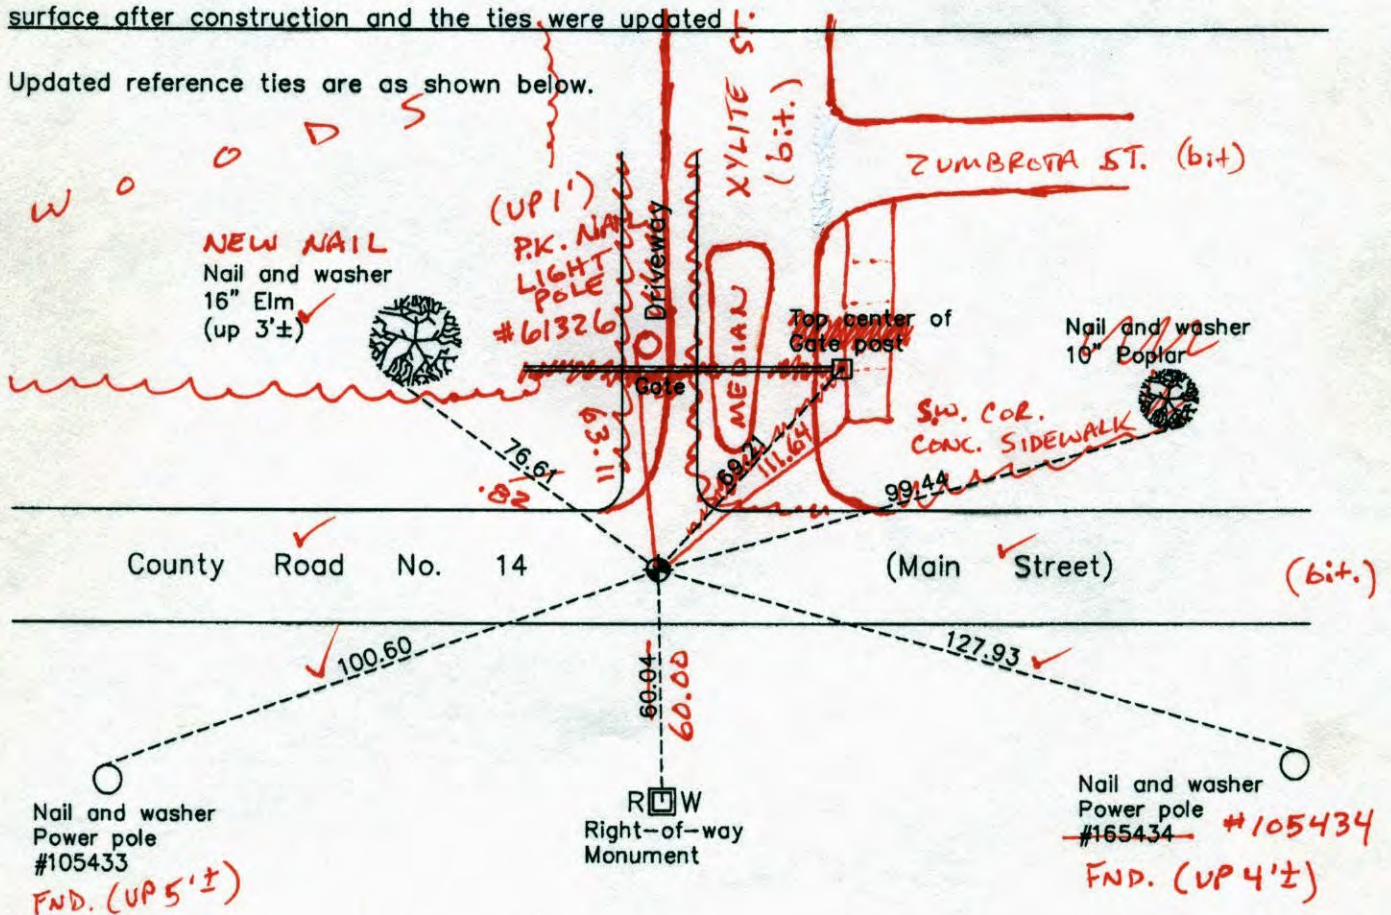 surface after construction and the ties were updated
Updated reference ties are as shown below.
WOODS
XYLITE ST.
(bit.)
ZUMBROTA ST. (bit)
NEW NAIL
Nail and washer
16" Elm
(up 3'±)
(UP 1')
P.K. NAIL
LIGHT
POLE
#61326
Driveway
MEDIAN
Top center of
Gate post
Nail and washer
10" Poplar
Gate
S.W. COR.
CONC. SIDEWALK
76.61
.82
63.11
69.21
111.64
99.44
County Road No. 14
(Main Street)
(bit.)
100.60
60.04
60.00
127.93
Nail and washer
Power pole
#105433
FND. (UP 5'±)
R W
Right-of-way
Monument
Nail and washer
Power pole
#165434 #105434
FND. (UP 4'±)